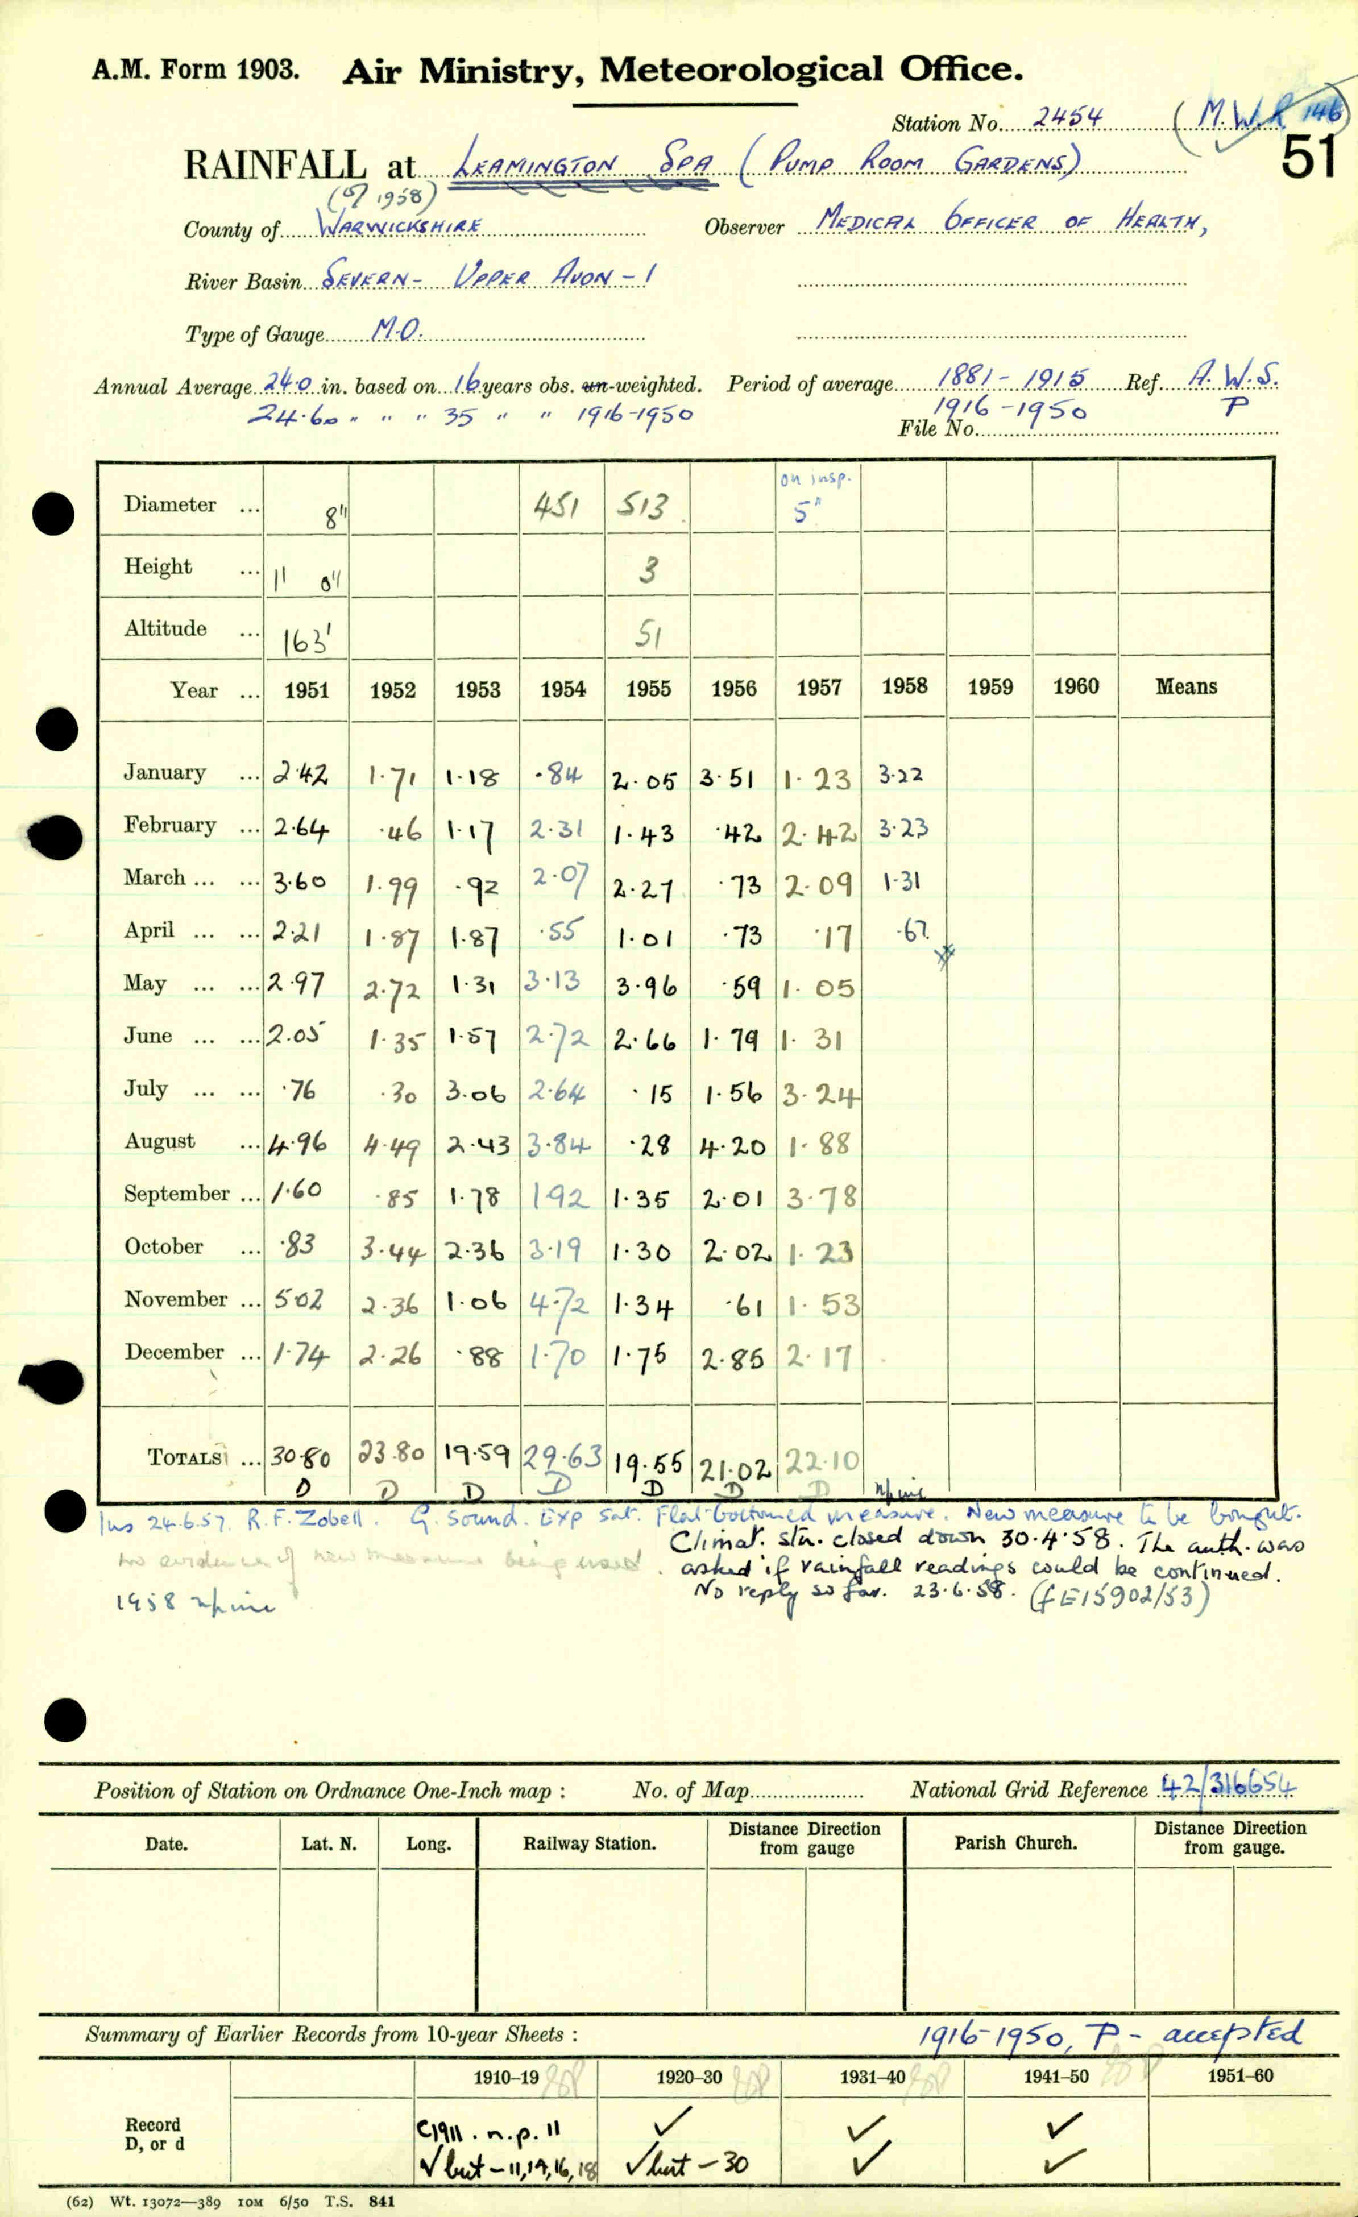 A.M. Form 1903. Air Ministry, Meteorological Office.
Station No. 2454 (M.W.R 146)
51
RAINFALL at LEAMINGTON SPA (PUMP ROOM GARDENS)
(of 1958)
County of WARWICKSHIRE Observer MEDICAL OFFICER OF HEALTH,
River Basin SEVERN - UPPER AVON - 1
Type of Gauge M.O.
Annual Average 24.0 in. based on 16 years obs. un-weighted. Period of average 1881 - 1915 Ref. A.W.S.
24.60 " " " 35 " " 1916-1950 1916-1950 P
File No.
on insp.
Diameter ... 8" 451 513 5"
Height ... 1' 0" 3
Altitude ... 163' 51
Year ... 1951 1952 1953 1954 1955 1956 1957 1958 1959 1960 Means
January ... 2.42 1.71 1.18 .84 2.05 3.51 1.23 3.22
February ... 2.64 .46 1.17 2.31 1.43 .42 2.42 3.23
March ... ... 3.60 1.99 .92 2.07 2.27 .73 2.09 1.31
April ... ... 2.21 1.87 1.87 .55 1.01 .73 .17 .67
May ... ... 2.97 2.72 1.31 3.13 3.96 .59 1.05
June ... ... 2.05 1.35 1.57 2.72 2.66 1.79 1.31
July ... ... .76 .30 3.06 2.64 .15 1.56 3.24
August ... 4.96 4.49 2.43 3.84 .28 4.20 1.88
September ... 1.60 .85 1.78 1.92 1.35 2.01 3.78
October ... .83 3.44 2.36 3.19 1.30 2.02 1.23
November ... 5.02 2.36 1.06 4.72 1.34 .61 1.53
December ... 1.74 2.26 .88 1.70 1.75 2.85 2.17
TOTALS ... 30.80 23.80 19.59 29.63 19.55 21.02 22.10
D D D D D D D
Ins 24.6.57. R.F. Zobell. G. Sound. Exp sat. Flat-bottomed measure. New measure to be bought.
no evidence of new measure being used.
Climat. stn. closed down 30.4.58. The auth. was
asked if rainfall readings could be continued.
No reply so far. 23.6.58. (f E15902/53)
1958
Position of Station on Ordnance One-Inch map : No. of Map National Grid Reference 42/316654
Date. Lat. N. Long. Railway Station. Distance Direction from gauge Parish Church. Distance Direction from gauge.
Summary of Earlier Records from 10-year Sheets : 1916-1950, P - accepted
1910–19 1920–30 1931–40 1941–50 1951–60
Record D, or d
C1911. n.p. 11 ✓ ✓ ✓
✓ but - 11,14,16,18 ✓ but - 30 ✓ ✓
(62) Wt. 13072—389 10M 6/50 T.S. 841